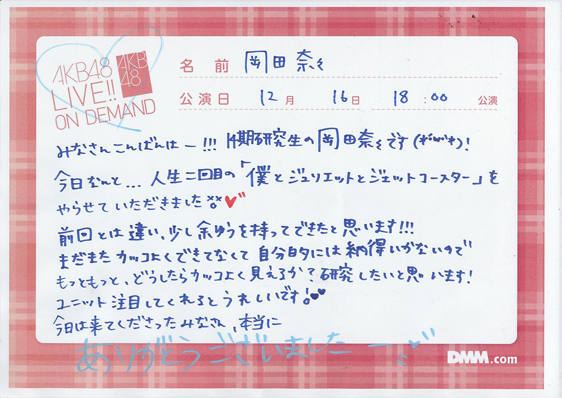 AKB48
LIVE!!
ON DEMAND
AKB
48
名 前 岡田奈々
公演日 12月 16日 18:00 公演
みなさんこんばんはー!!! 14期研究生の岡田奈々です(*'ω'*)!
今日なんと... 人生二回目の「僕とジュリエットとジェットコースター」を
やらせていただきました
前回とは違い、少し余ゆうを持ってできたと思います!!!
まだまだカッコよくできてなくて自分的には納得いかないので
もっともっと、どうしたらカッコよく見えるか?研究したいと思います!
ユニット注目してくれるとうれしいです!
今日は来てくださったみなさん、本当に
ありがとうございましたー
DMM.com